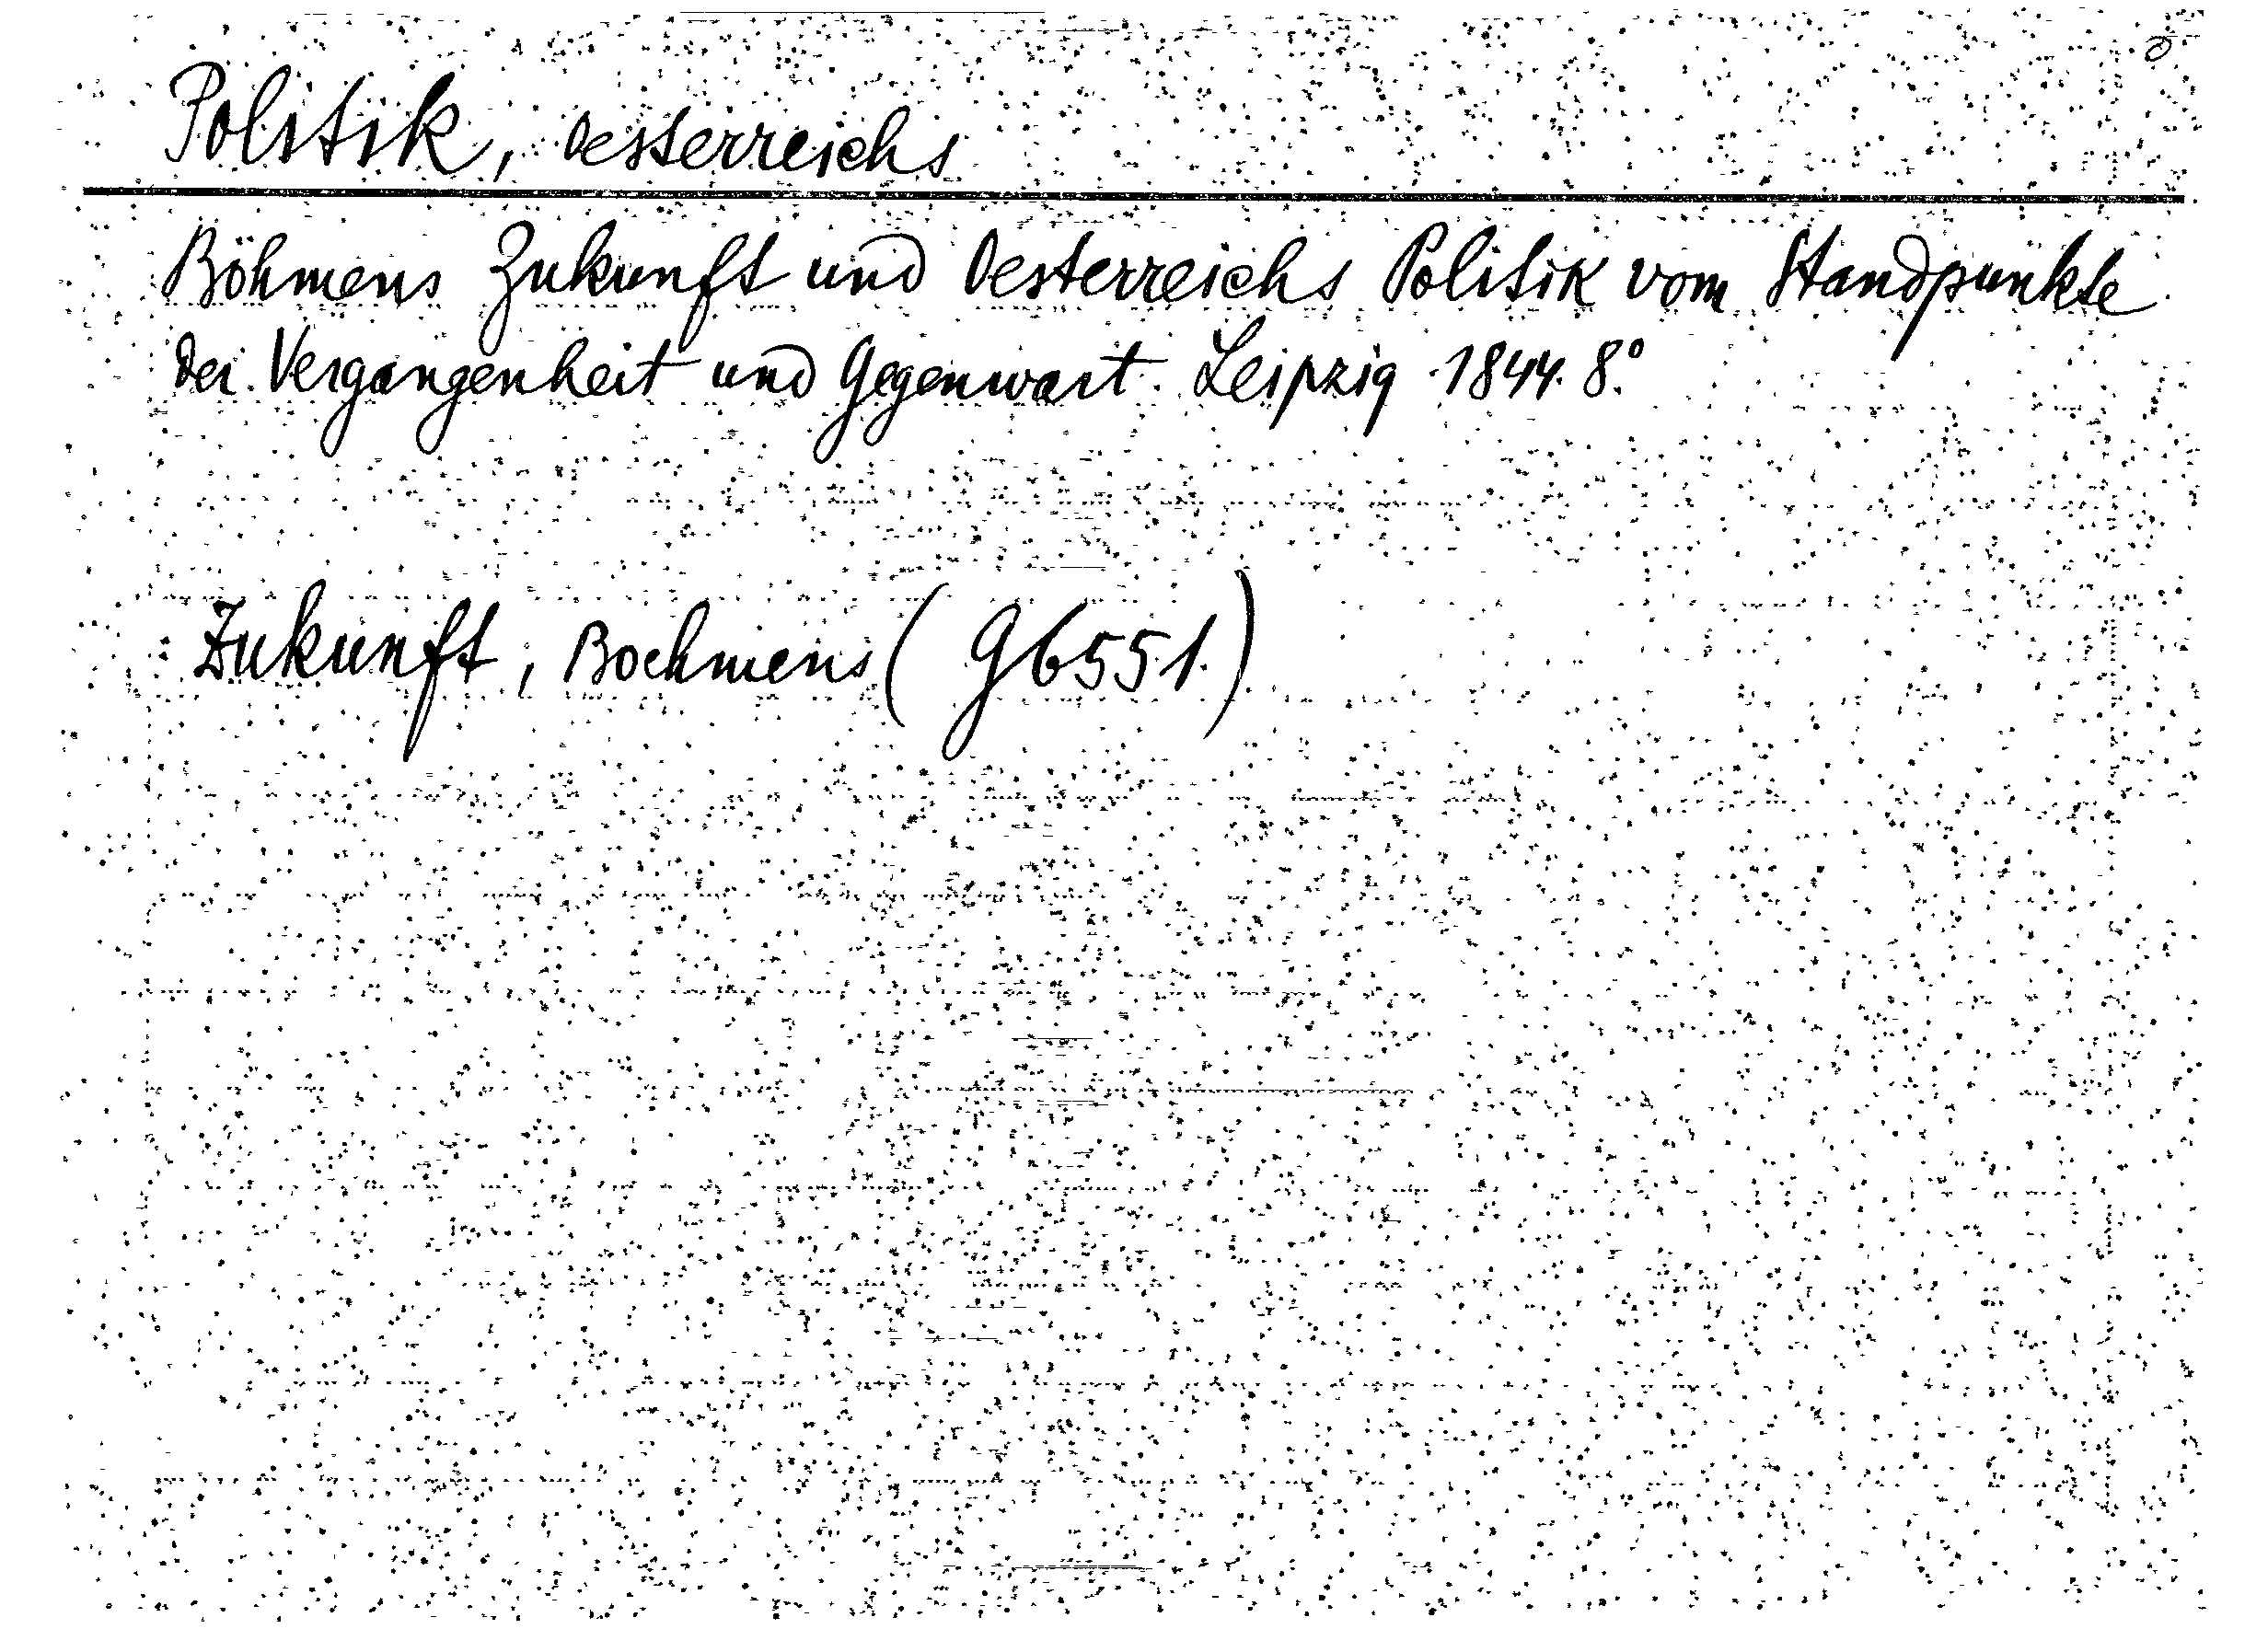 Politik, Oesterreichs
Böhmens Zukunft und Oesterreichs Politik vom Standpunkte
der Vergangenheit und Gegenwart. Leipzig 1844. 8.°
Zukunft, Boehmens (G6551.)